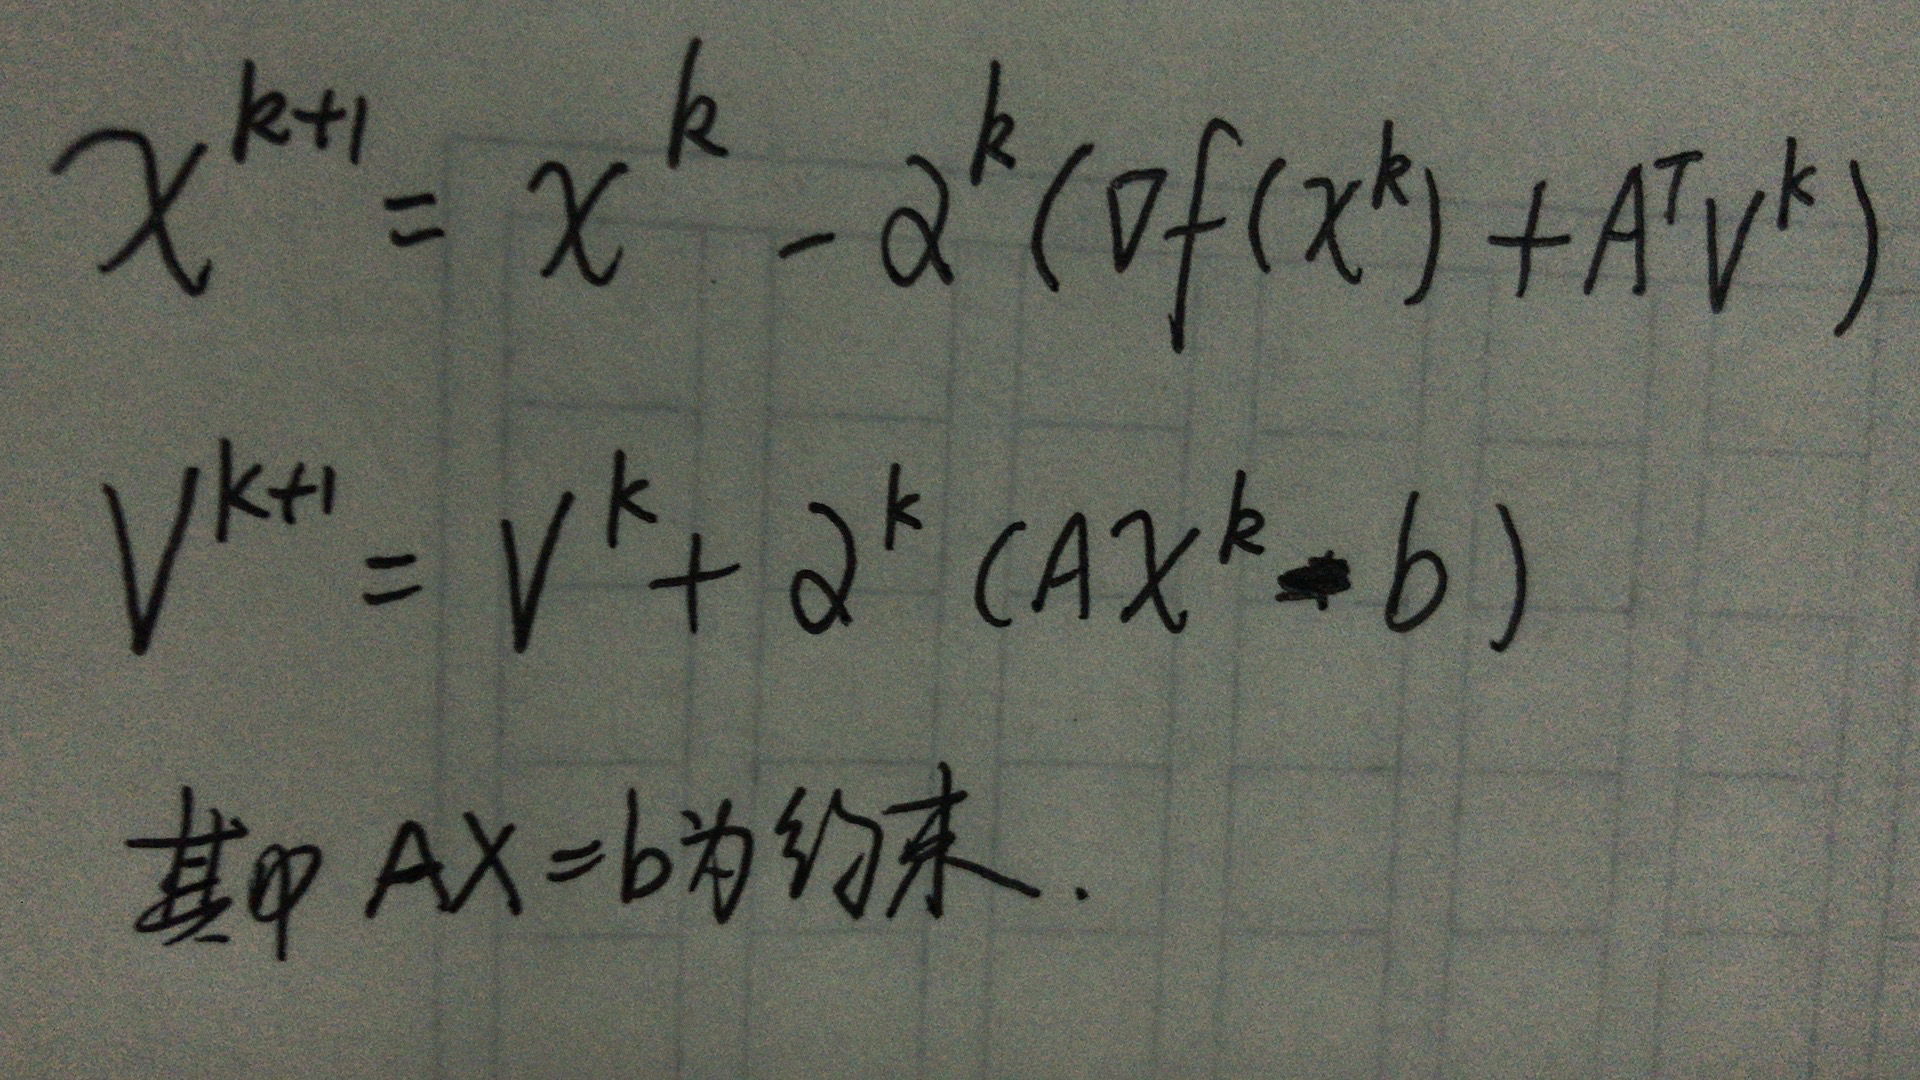 x^{k+1} = x^k - α^k (∇f(x^k) + A^T V^k)
V^{k+1} = V^k + α^k (AX^k - b)
其中 AX = b为约束.